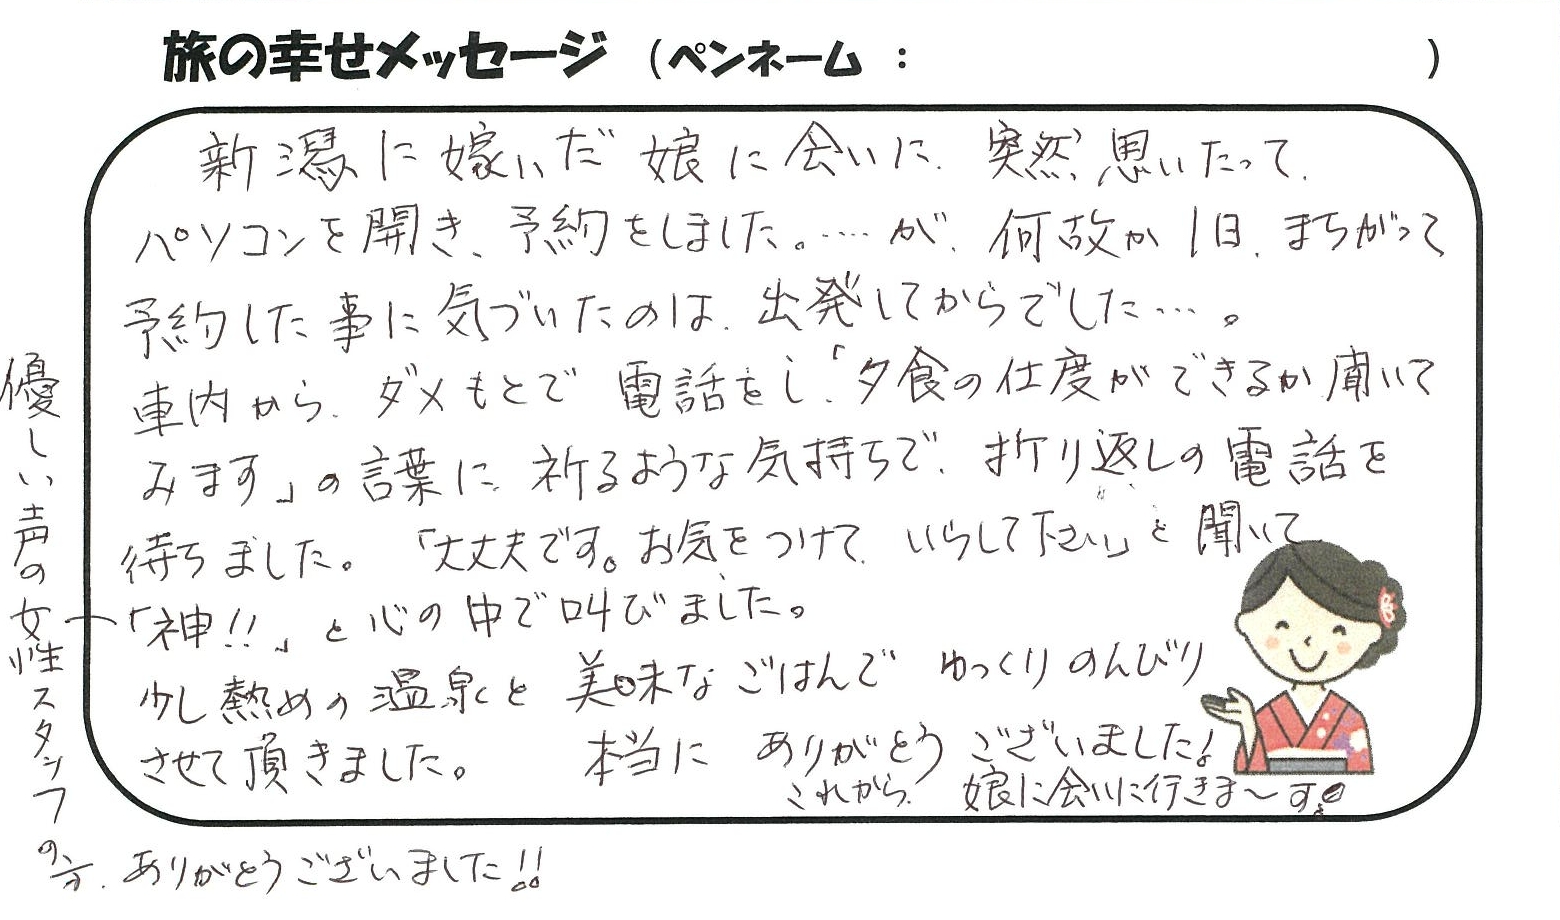 旅の幸せメッセージ (ペンネーム : )
新潟に嫁いだ娘に会いに、突然、思いたって、
パソコンを開き、予約をしました。……が、何故か1日、まちがって
予約した事に気づいたのは、出発してからでした…。
車内から、ダメもとで電話をし、「夕食の仕度ができるか聞いて
みます」の言葉に、祈るような気持ちで、折り返しの電話を
待ちました。「大丈夫です。お気をつけて、いらして下さい」と聞いて
「神!!」と心の中で叫びました。
少し熱めの温泉と美味なごはんでゆっくりのんびり
させて頂きました。 本当に ありがとうございました!
これから、娘に会いに行きま〜す。
優しい声の女性スタッフの方、ありがとうございました!!